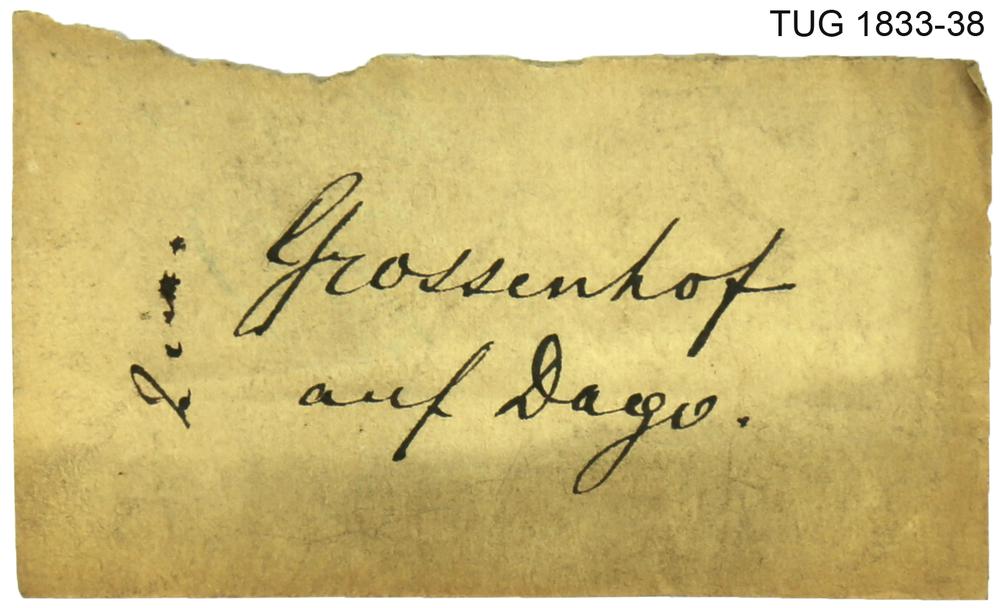 TUG 1833-38
Grossenhof
auf Dago.